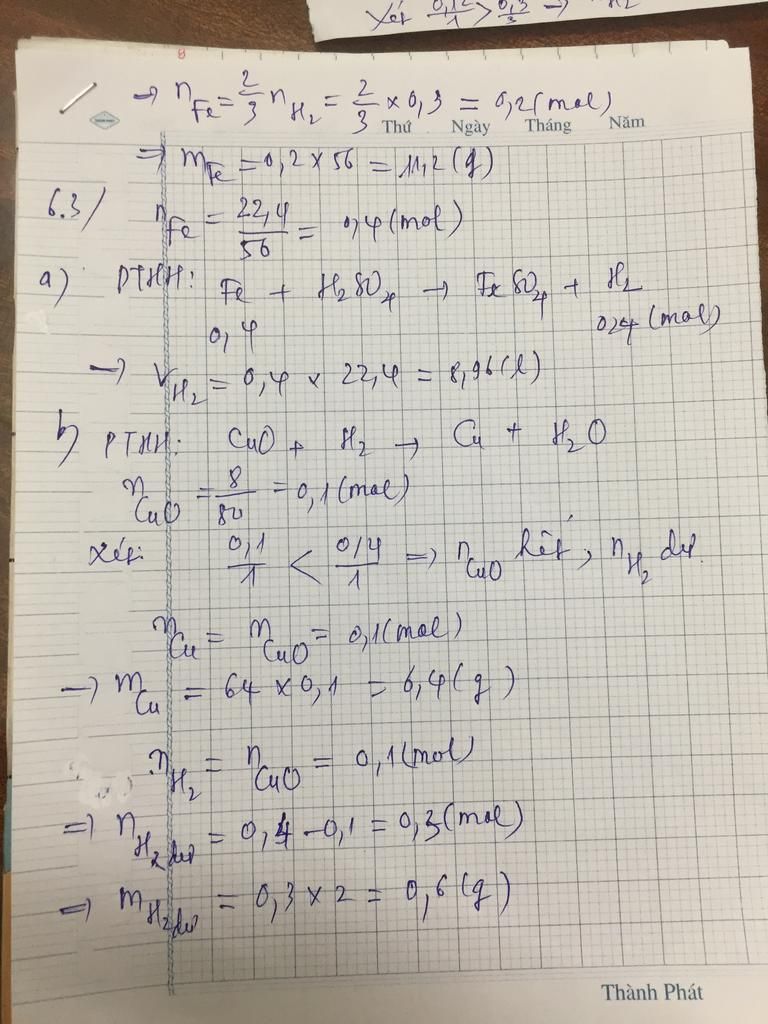 Xét 0,12/1 > 0,3/3 → H₂
→ n_Fe = 2/3 n_H₂ = 2/3 × 0,3 = 0,2 (mol)
Thứ Ngày Tháng Năm
⇒ m_Fe = 0,2 × 56 = 11,2 (g)
6.3/ n_Fe = 22,4/56 = 0,4 (mol)
a) PTHH: Fe + H₂SO₄ → FeSO₄ + H₂
0,4 0,4 (mol)
→ V_H₂ = 0,4 × 22,4 = 8,96 (l)
b) PTHH: CuO + H₂ → Cu + H₂O
n_CuO = 8/80 = 0,1 (mol)
Xét: 0,1/1 < 0,4/1 ⇒ n_CuO hết, n_H₂ dư.
n_Cu = n_CuO = 0,1 (mol)
→ m_Cu = 64 × 0,1 = 6,4 (g)
n_H₂ = n_CuO = 0,1 (mol)
⇒ n_H₂ dư = 0,4 - 0,1 = 0,3 (mol)
⇒ m_H₂ dư = 0,3 × 2 = 0,6 (g)
Thành Phát